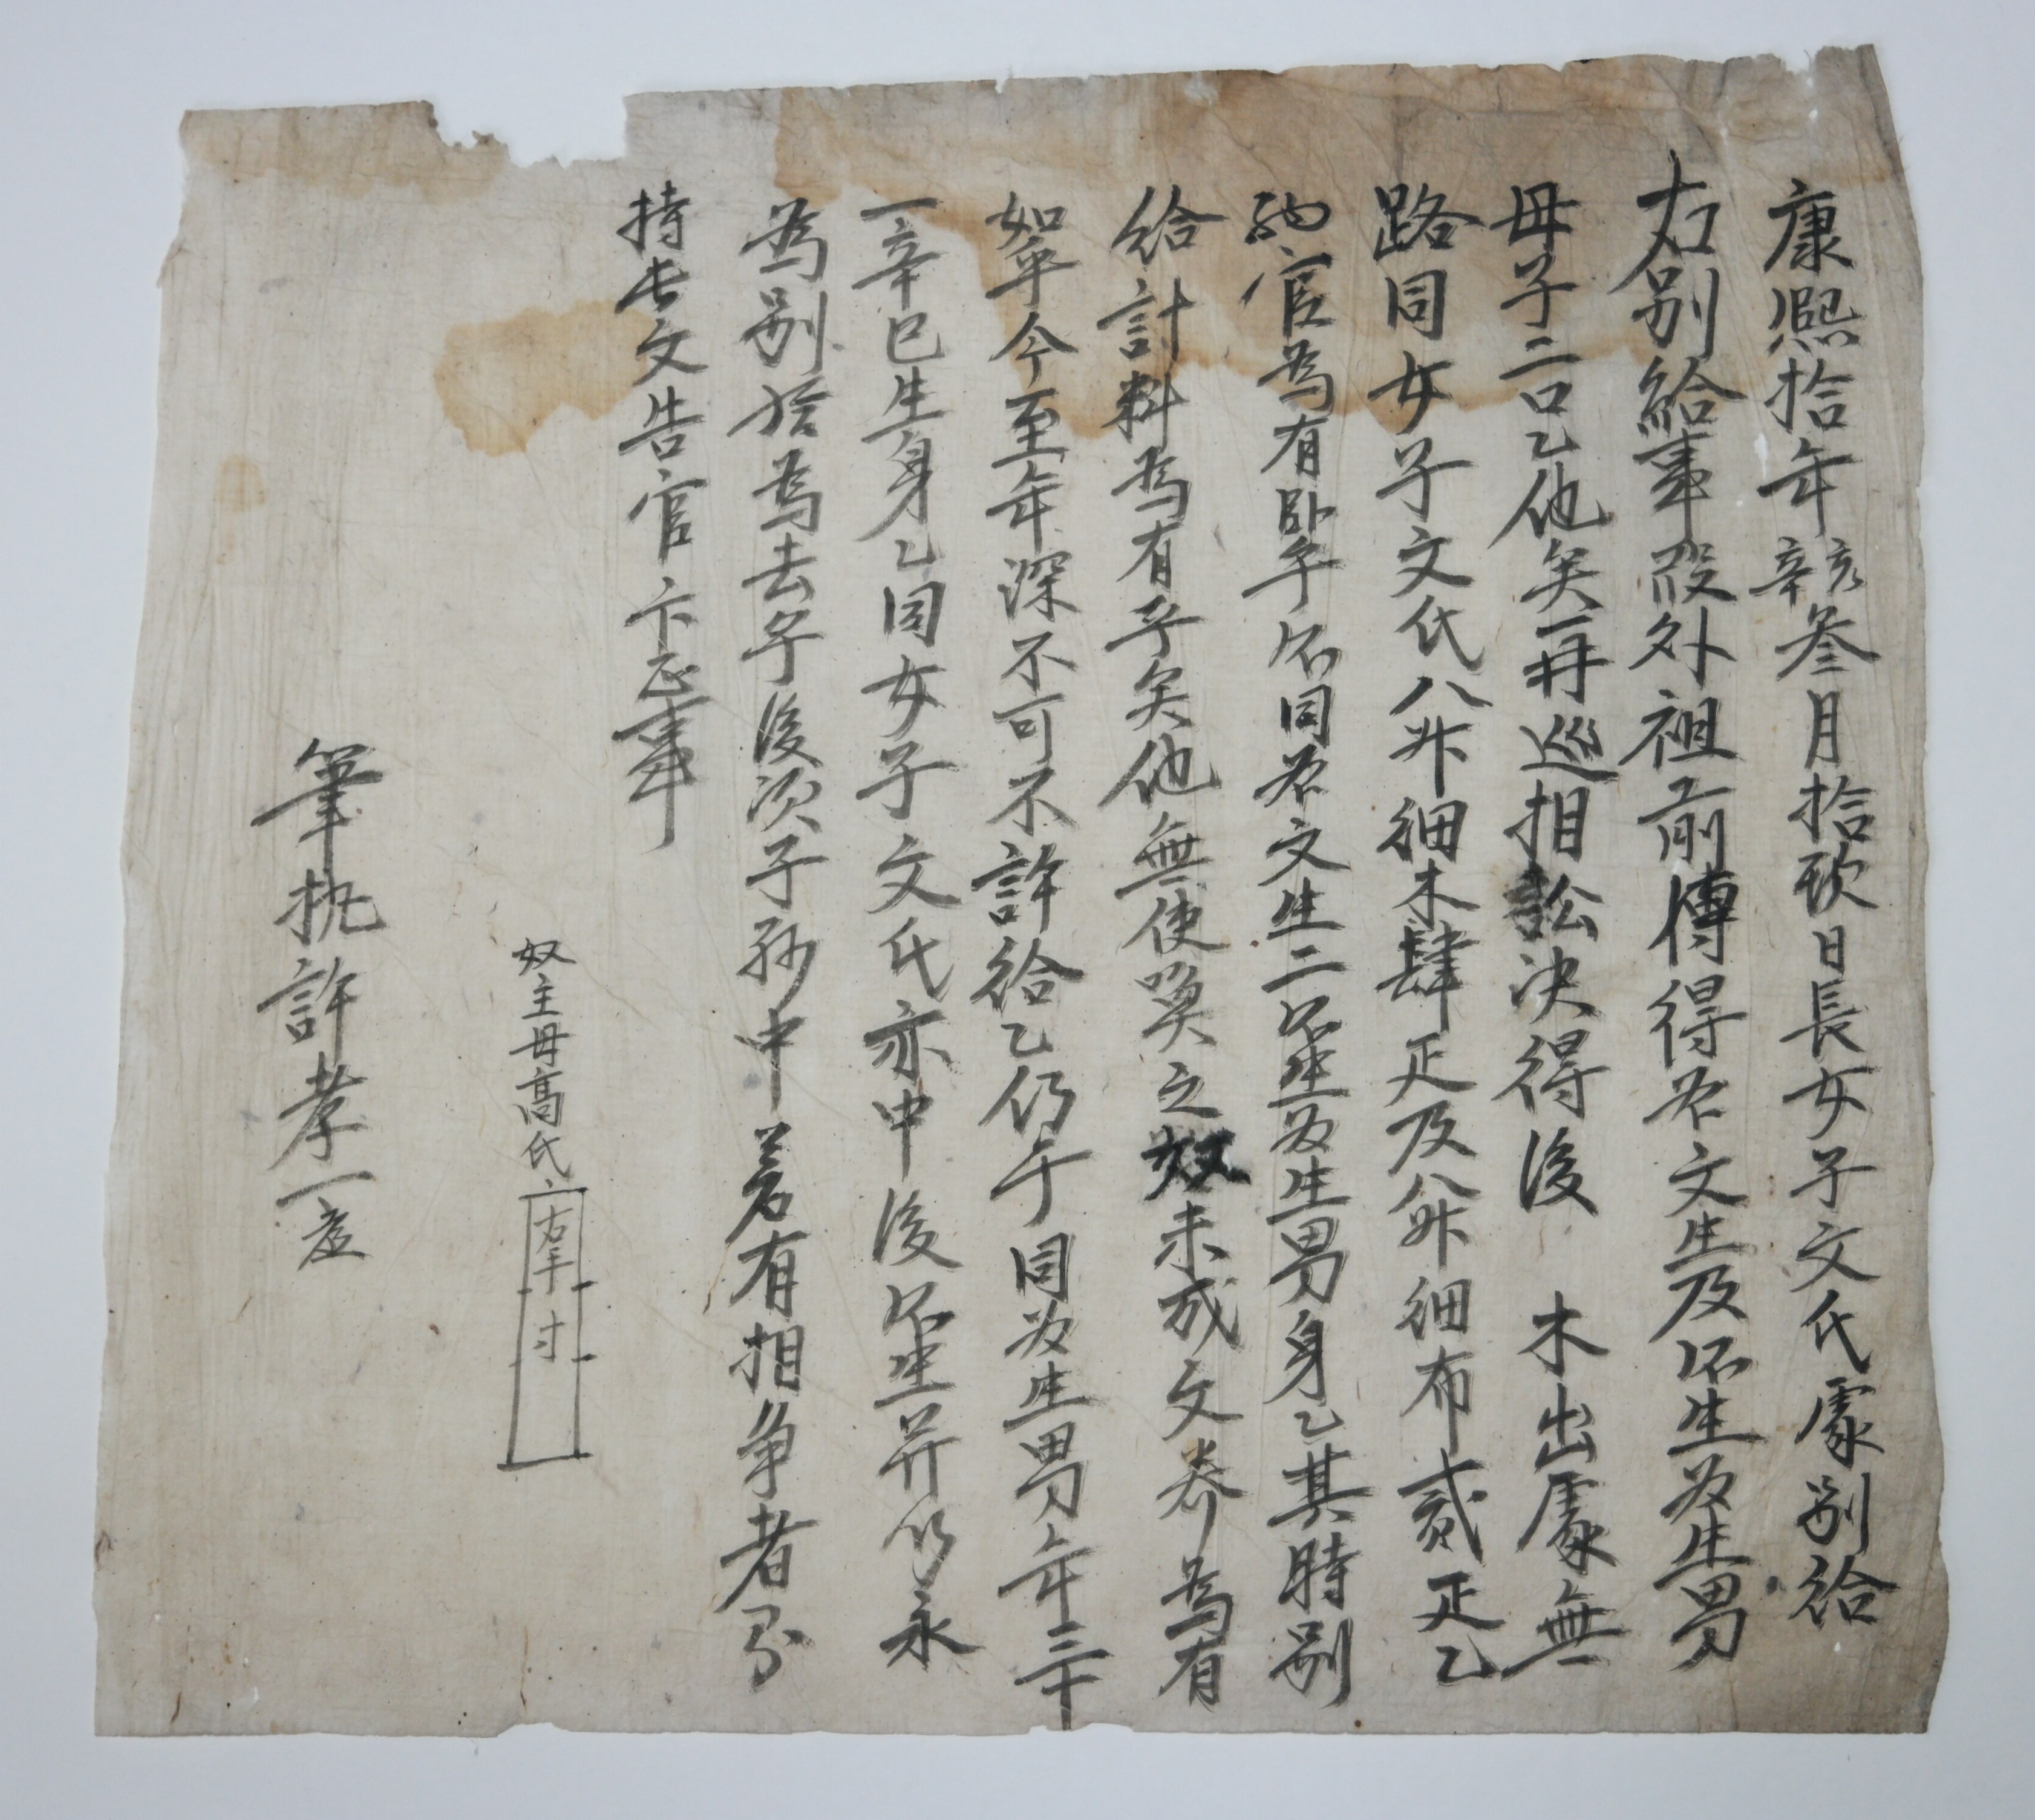 康熙拾年辛亥叁月拾玖日長女子文氏處別給
右別給事段外祖前傳得名文生及所生名生男
母子二口乙他矣再巡相訟決得後 木出處無
路同女子文氏八升細木肆疋及八升細布貳疋乙
納官爲有臥乎所同名文生二所生名生男身乙其時別
給計料爲有乎矣他無使喚之奴未成文券爲有
如乎今至年深不可不許給乙仍于同名生男年三十
一辛巳生身乙同女子文氏亦中後所生并以永
爲別給爲去乎後次子孫中若有相爭者是
持此文告官卞正事
奴主母高氏
右手寸
筆執許孝一